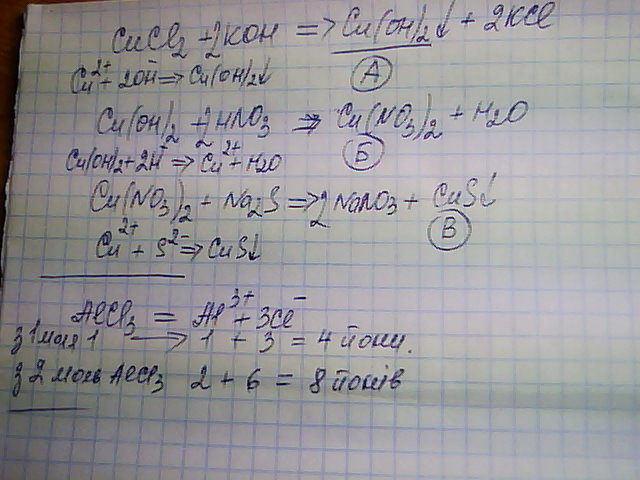 CuCl₂ + 2KOH => Cu(OH)₂↓ + 2KCl
Cu²⁺ + 2OH⁻ => Cu(OH)₂↓
А
Cu(OH)₂ + 2HNO₃ => Cu(NO₃)₂ + H₂O
Cu(OH)₂ + 2H⁺ => Cu²⁺ + H₂O
Б
Cu(NO₃)₂ + Na₂S => 2NaNO₃ + CuS↓
Cu²⁺ + S²⁻ => CuS↓
В
AlCl₃ = Al³⁺ + 3Cl⁻
з 1 моля 1 → 1 + 3 = 4 йони.
з 2 моль AlCl₃ 2 + 6 = 8 йонів